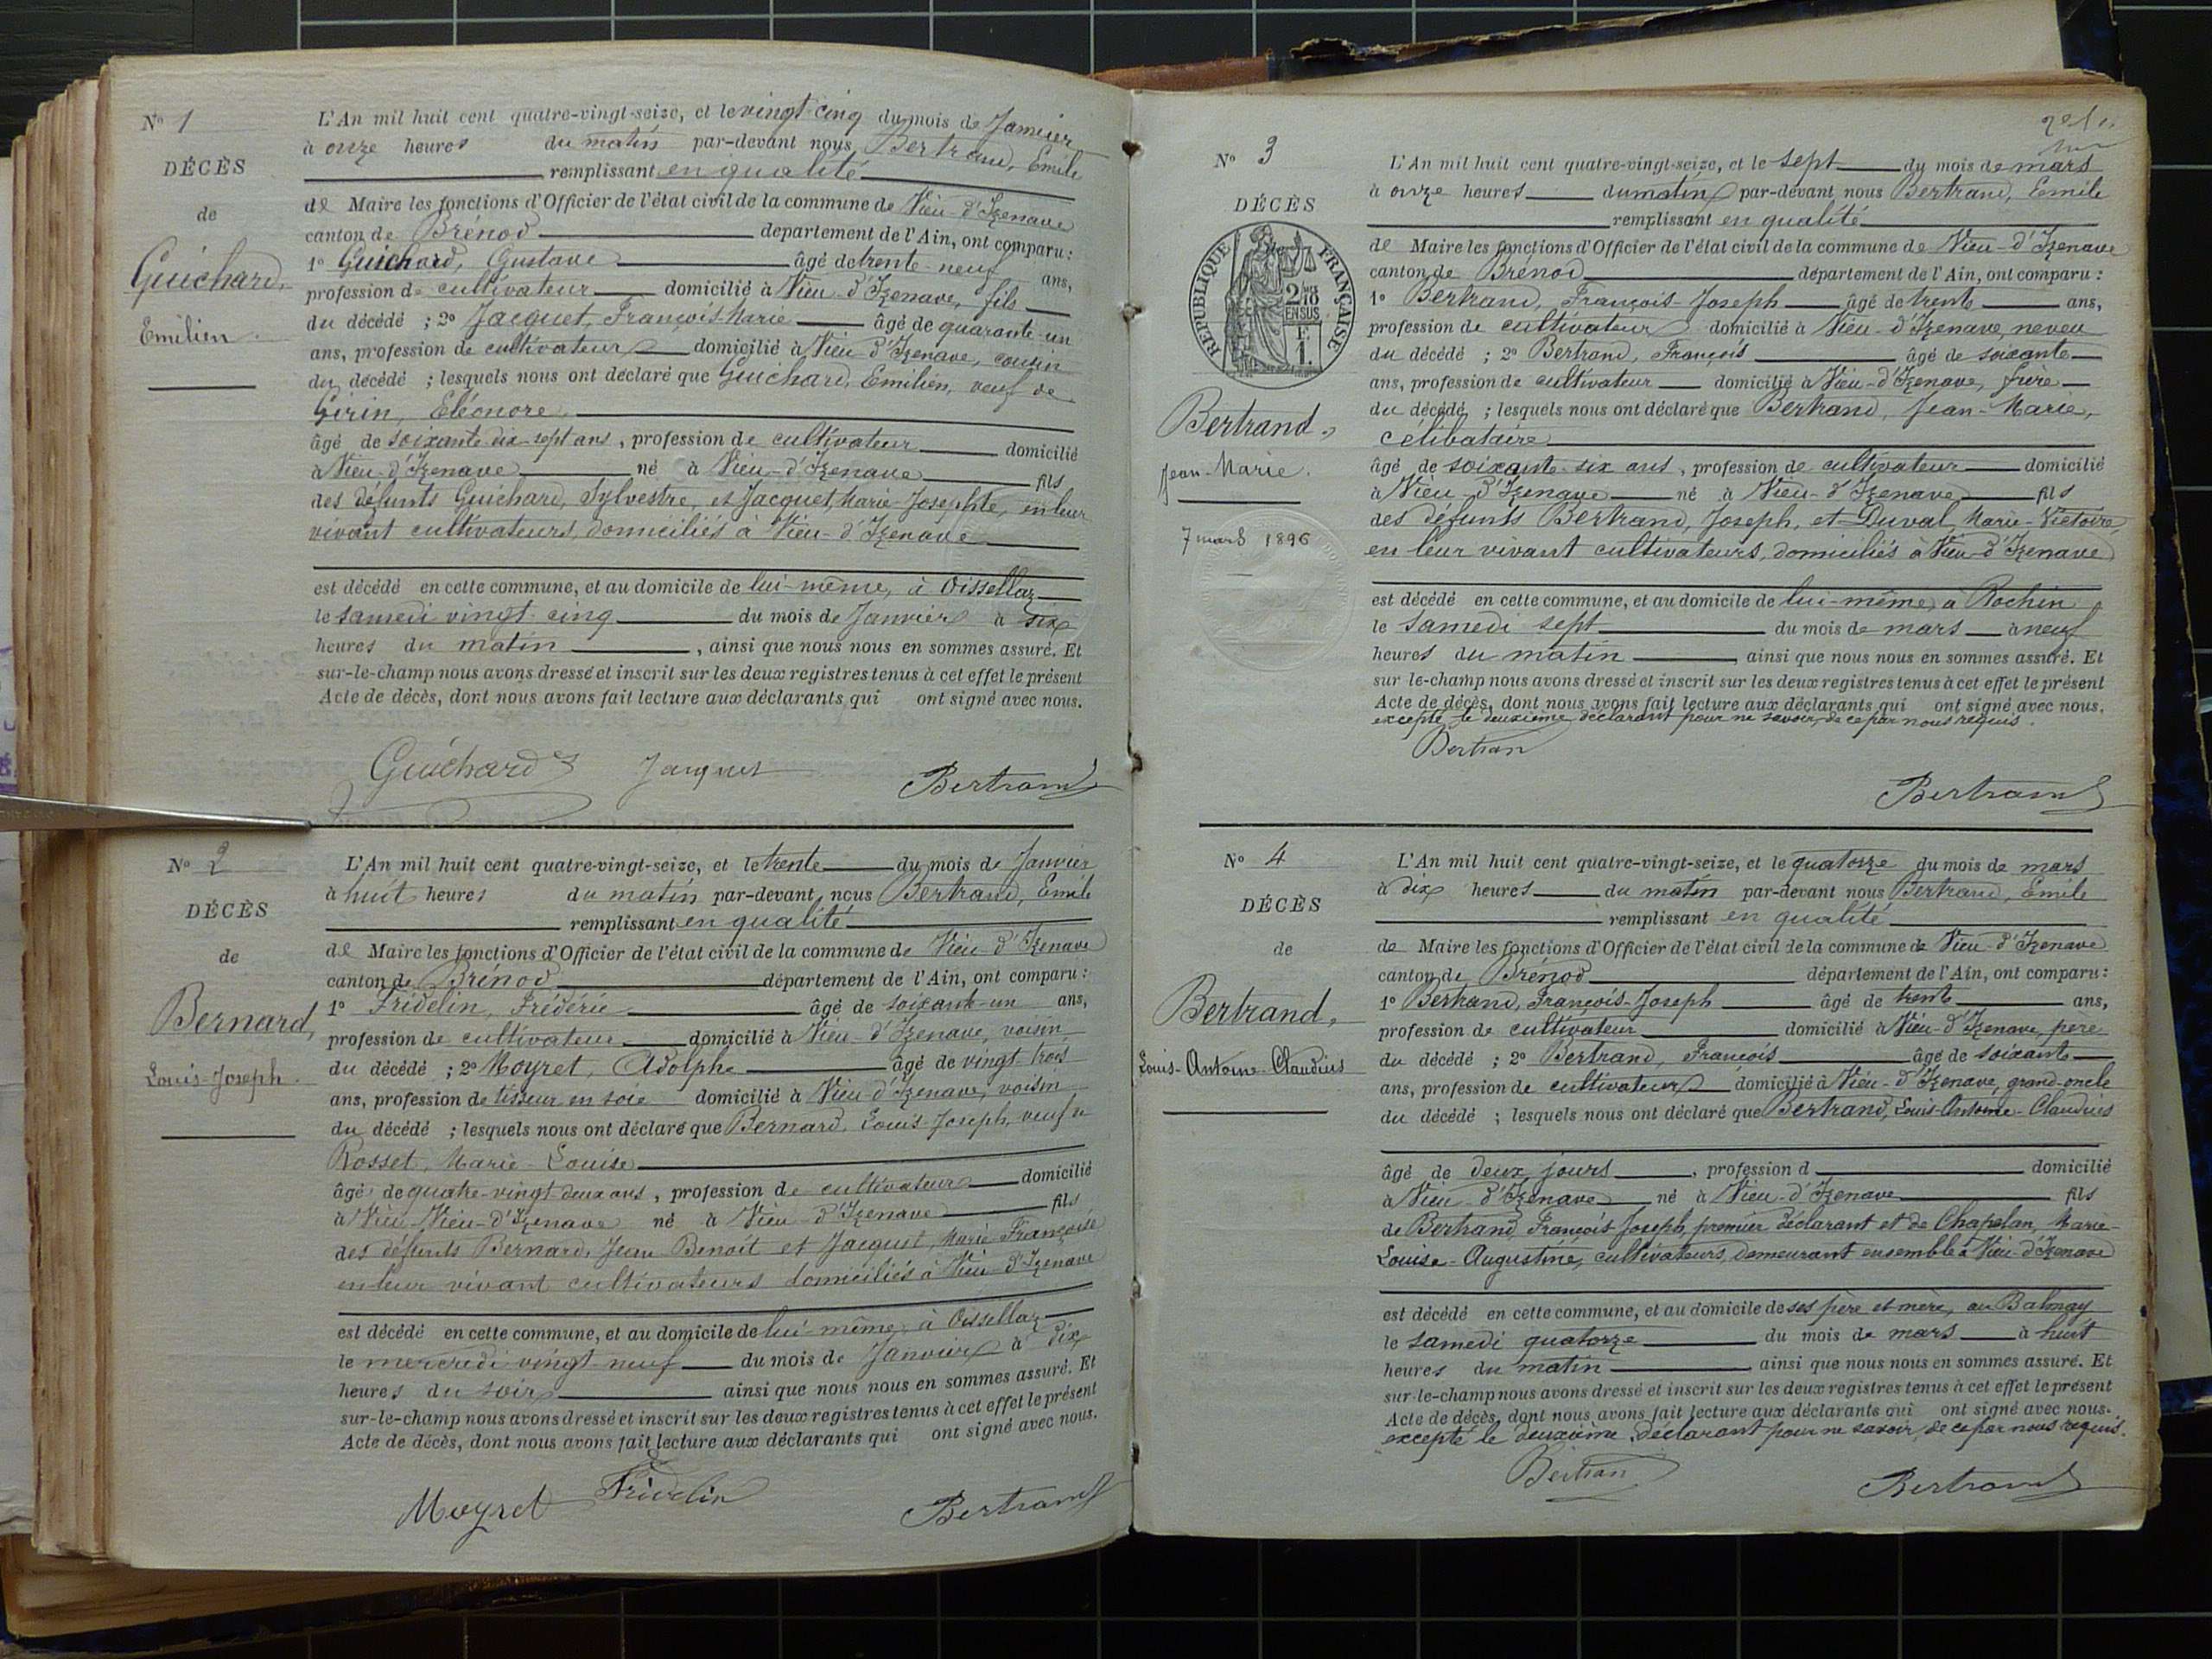 N° 1
DÉCÈS
de
Guichard,
Emilien.
L'An mil huit cent quatre-vingt-seize, et le vingt-cinq du mois de Janvier
à onze heures du matin par-devant nous Bertrand, Emile
remplissant en qualité
de Maire les fonctions d'Officier de l'état civil de la commune de Vieu-d'Izenave
canton de Brénod département de l'Ain, ont comparu :
1° Guichard, Gustave âgé de trente-neuf ans,
profession de cultivateur domicilié à Vieu-d'Izenave, fils
du décédé ; 2° Jacquet, François-Marie âgé de quarante-un
ans, profession de cultivateur domicilié à Vieu-d'Izenave, cousin
du décédé ; lesquels nous ont déclaré que Guichard, Emilien, veuf de
Girin, Eléonore
âgé de soixante-dix-sept ans, profession de cultivateur domicilié
à Vieu-d'Izenave né à Vieu-d'Izenave fils
des défunts Guichard, Sylvestre, et Jacquet, Marie-Josephte, en leur
vivant cultivateurs, domiciliés à Vieu-d'Izenave
est décédé en cette commune, et au domicile de lui-même, à Oissellaz
le samedi vingt-cinq du mois de Janvier à six
heures du matin, ainsi que nous nous en sommes assuré. Et
sur-le-champ nous avons dressé et inscrit sur les deux registres tenus à cet effet le présent
Acte de décès, dont nous avons fait lecture aux déclarants qui ont signé avec nous.
Guichard Jacquet Bertrand
N° 2
DÉCÈS
de
Bernard,
Louis-Joseph.
L'An mil huit cent quatre-vingt-seize, et le trente du mois de Janvier
à huit heures du matin par-devant nous Bertrand, Emile
remplissant en qualité
de Maire les fonctions d'Officier de l'état civil de la commune de Vieu-d'Izenave
canton de Brénod département de l'Ain, ont comparu :
1° Fridelin, Frédéric âgé de soixante-un ans,
profession de cultivateur domicilié à Vieu-d'Izenave, voisin
du décédé ; 2° Moyret, Adolphe âgé de vingt-trois
ans, profession de tisseur en soie domicilié à Vieu-d'Izenave, voisin
du décédé ; lesquels nous ont déclaré que Bernard, Louis-Joseph, veuf
Rosset, Marie-Louise
âgé de quatre-vingt-deux ans, profession de cultivateur domicilié
à Vieu-Vieu-d'Izenave né à Vieu-d'Izenave fils
des défunts Bernard, Jean Benoît et Jacquet, Marie-Françoise
en leur vivant cultivateurs domiciliés à Vieu-d'Izenave
est décédé en cette commune, et au domicile de lui-même, à Oissellaz
le mercredi vingt-neuf du mois de Janvier à dix
heures du soir ainsi que nous nous en sommes assuré. Et
sur-le-champ nous avons dressé et inscrit sur les deux registres tenus à cet effet le présent
Acte de décès, dont nous avons fait lecture aux déclarants qui ont signé avec nous.
Moyret Fridelin Bertrand
N° 3
DÉCÈS
RÉPUBLIQUE FRANÇAISE
2/10 EN SUS
F. 1.
Bertrand,
Jean-Marie.
7 mars 1896
L'An mil huit cent quatre-vingt-seize, et le sept du mois de mars
à onze heures du matin par-devant nous Bertrand, Emile
remplissant en qualité
de Maire les fonctions d'Officier de l'état civil de la commune de Vieu-d'Izenave
canton de Brénod département de l'Ain, ont comparu :
1° Bertrand, François-Joseph âgé de trente ans,
profession de cultivateur domicilié à Vieu-d'Izenave, neveu
du décédé ; 2° Bertrand, François âgé de soixante
ans, profession de cultivateur domicilié à Vieu-d'Izenave, frère
du décédé ; lesquels nous ont déclaré que Bertrand, Jean-Marie,
célibataire
âgé de soixante-six ans, profession de cultivateur domicilié
à Vieu-d'Izenave né à Vieu-d'Izenave fils
des défunts Bertrand, Joseph, et Duval, Marie-Victoire,
en leur vivant cultivateurs, domiciliés à Vieu-d'Izenave
est décédé en cette commune, et au domicile de lui-même, à Rochin
le samedi sept du mois de mars à neuf
heures du matin, ainsi que nous nous en sommes assuré. Et
sur-le-champ nous avons dressé et inscrit sur les deux registres tenus à cet effet le présent
Acte de décès, dont nous avons fait lecture aux déclarants qui ont signé avec nous,
excepté le deuxième déclarant pour ne savoir, de ce par nous requis.
Bertran
Bertrand
N° 4
DÉCÈS
de
Bertrand,
Louis-Antoine-Claudius
L'An mil huit cent quatre-vingt-seize, et le quatorze du mois de mars
à dix heures du matin par-devant nous Bertrand, Emile
remplissant en qualité
de Maire les fonctions d'Officier de l'état civil de la commune de Vieu-d'Izenave
canton de Brénod département de l'Ain, ont comparu :
1° Bertrand, François-Joseph âgé de trente ans,
profession de cultivateur domicilié à Vieu-d'Izenave, père
du décédé ; 2° Bertrand, François âgé de soixante
ans, profession de cultivateur domicilié à Vieu-d'Izenave, grand-oncle
du décédé ; lesquels nous ont déclaré que Bertrand, Louis-Antoine-Claudius
âgé de deux jours, profession d domicilié
à Vieu-d'Izenave né à Vieu-d'Izenave fils
de Bertrand, François-Joseph, premier déclarant et de Chapelan, Marie-
Louise-Augustine, cultivateurs, demeurant ensemble à Vieu-d'Izenave
est décédé en cette commune, et au domicile de ses père et mère, au Balmay
le samedi quatorze du mois de mars à huit
heures du matin ainsi que nous nous en sommes assuré. Et
sur-le-champ nous avons dressé et inscrit sur les deux registres tenus à cet effet le présent
Acte de décès, dont nous avons fait lecture aux déclarants qui ont signé avec nous.
excepté le deuxième déclarant pour ne savoir, de ce par nous requis.
Bertran Bertrand